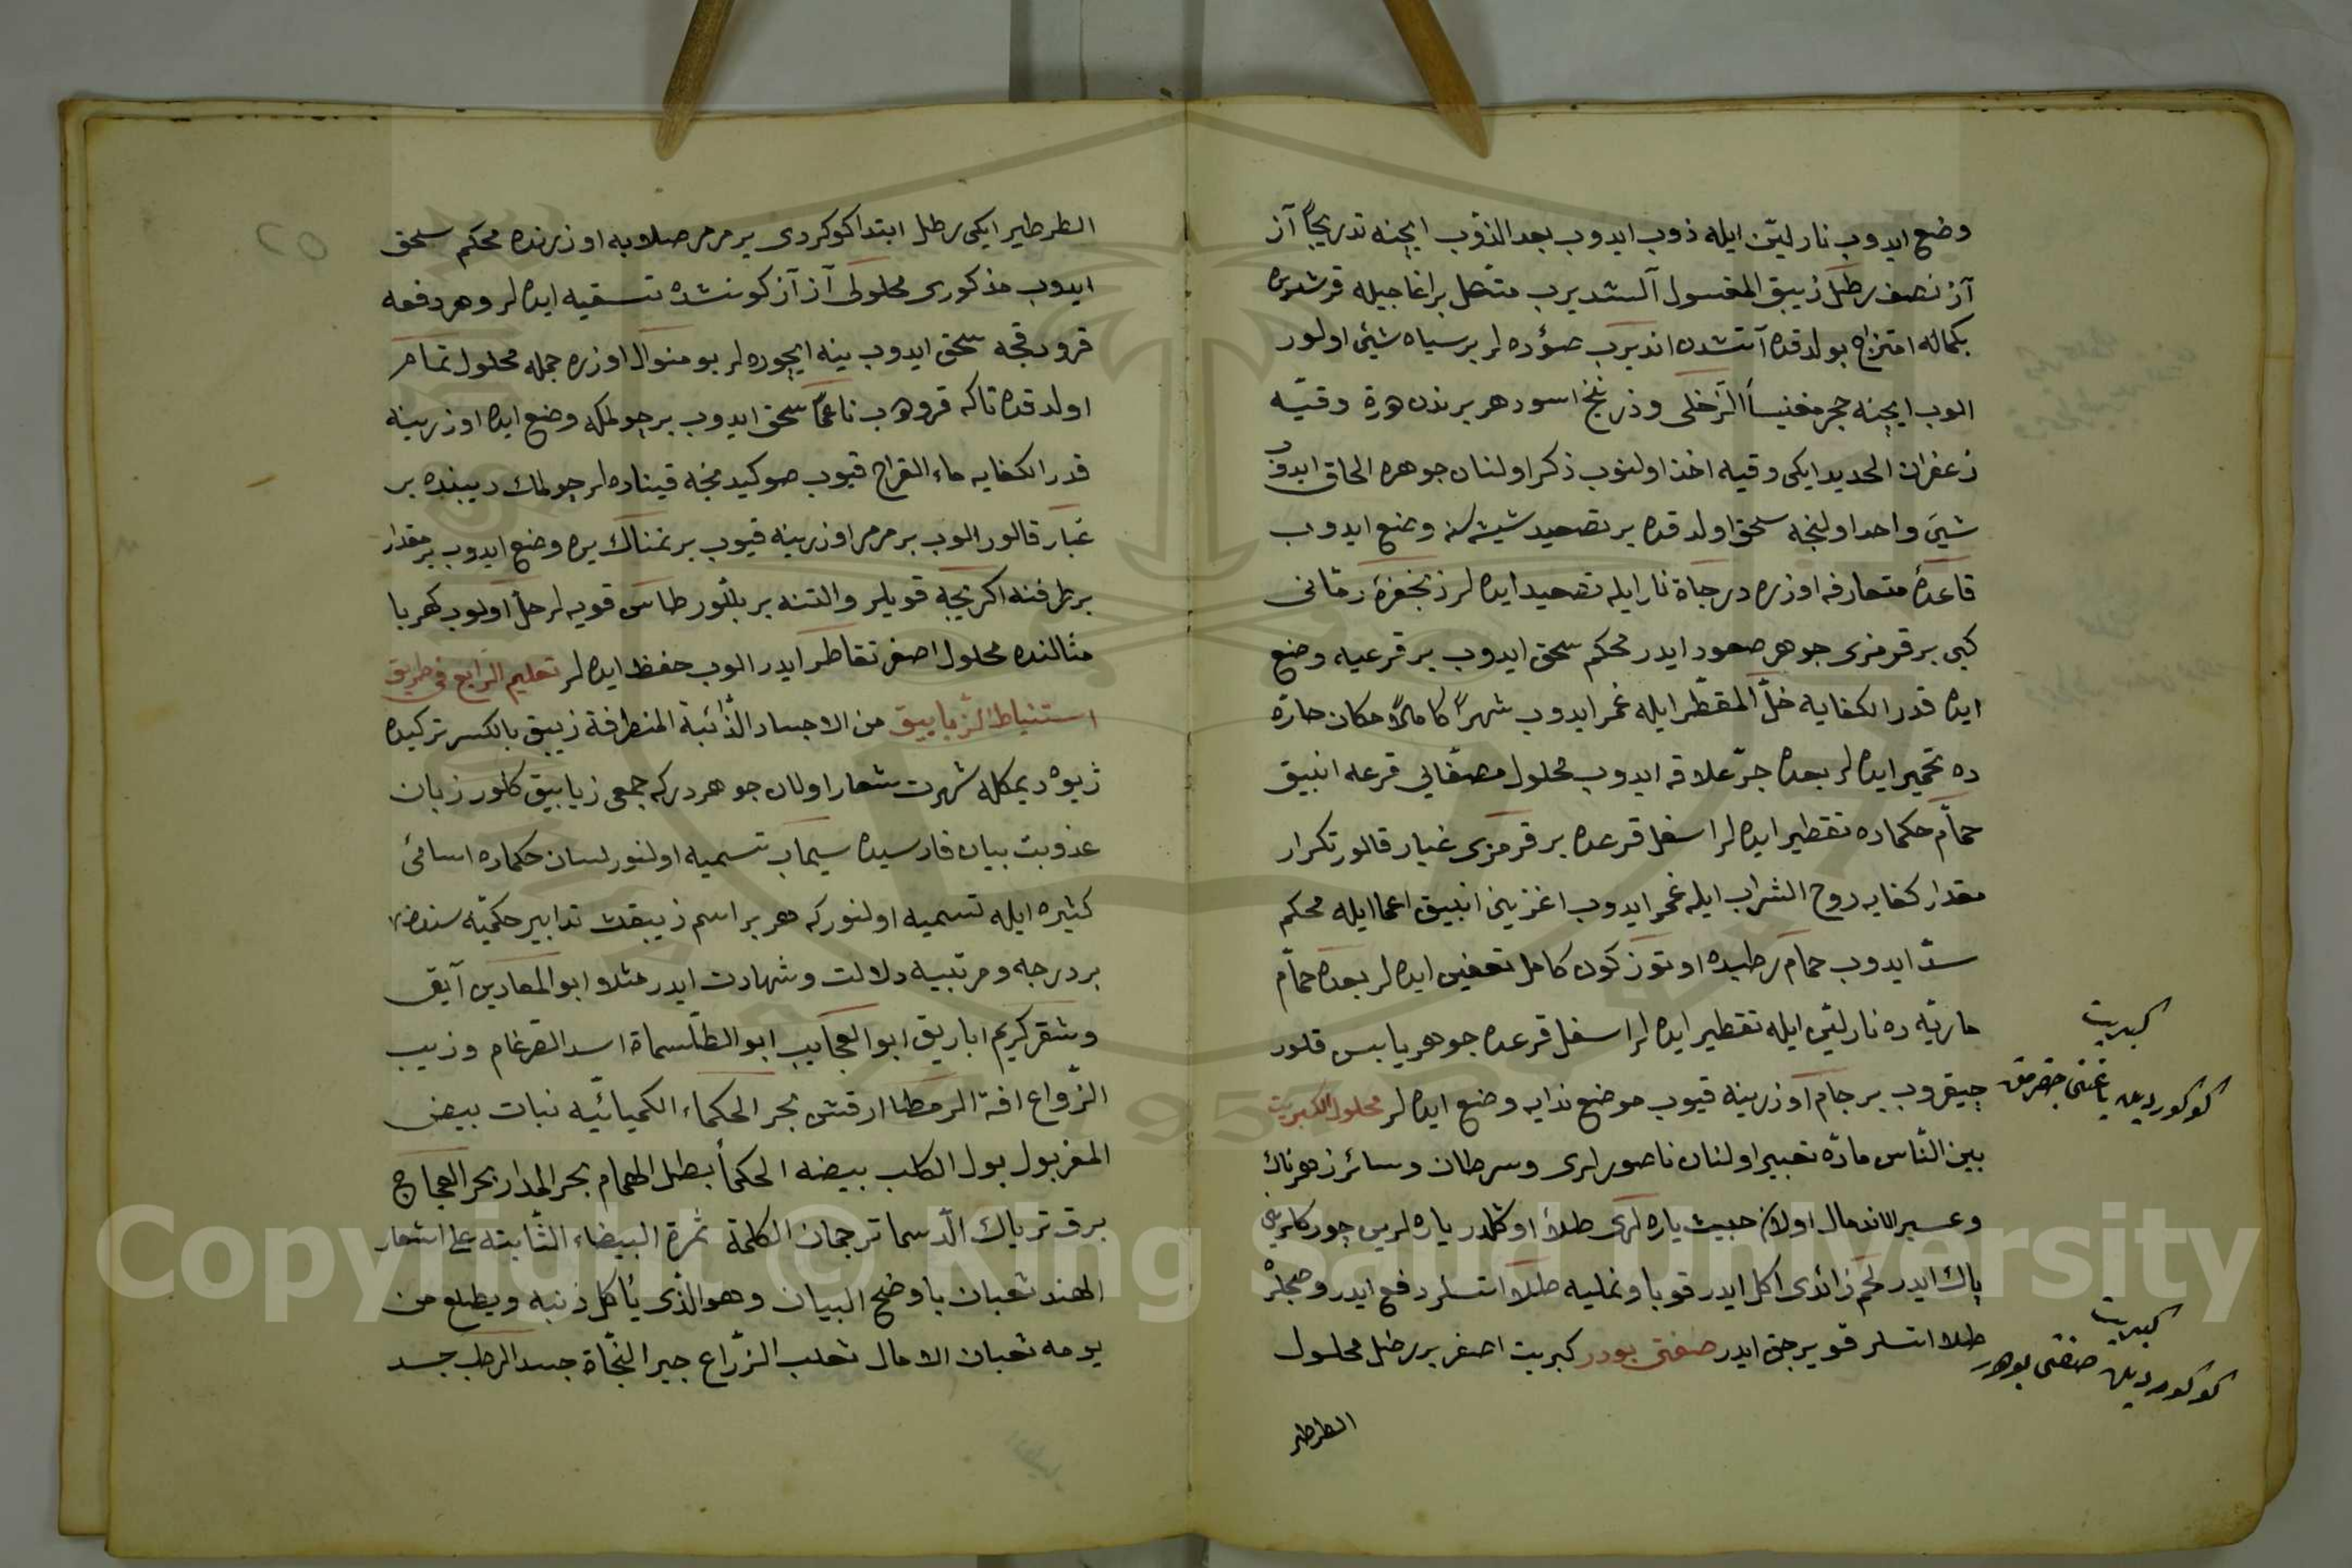 وضع ايدوب نار ليّن ايله ذوب ايدوب بعد الذوب ايچنه تدريجاً آز
آز نصف رطل زيبق المغسول آلشديرب متحل بر اغاجيله قرشديره
بكماله امتزاج بولدقده آتشدن اندیرب صؤوده لر بر سياه شيئ اولور
الوب ايچنه حجر مغنيسا الزخلی وزرنيخ اسود هر برندن وقيّه
زعفران الحديد ايكی وقيه اخذ اولنوب ذكر اولنان جوهره الحاق ايدوب
شيئ واحد اولنجه سحق اولدقده بر تصعيد شيشه سنه وضع ايدوب
قاعدۀ متعارفه اوزره درجاة نار ايله تصعيد ايده لر زنجفرۀ رمّانی
كبی بر قرمزی جوهر صعود ايدر محكم سحق ايدوب بر قرعيه وضع
ايده قدر الكفايه خلّ المقطّر ايله غمر ايدوب شهراً كاملاً مكان حارّه
ده تخمير ايده لر بعده جرّ علاقه ايدوب محلول مصفّايی قرعه انبيق
حمّام حكماده تقطير ايده لر اسفل قرعده بر قرمزی غبار قالور تكرار
مقدار كفايه روح الشراب ايله غمر ايدوب اغزينی انبيق اعما ايله محكم
سدّ ايدوب حمام رطبده اوتوز كون كامل تعفين ايده لر بعده حمّام
ماريّه ده نار ليّن ايله تقطير ايده لر اسفل قرعده جوهر يابس قلور
چيقروب بر جام اوزرينه قيوب موضع ندايه وضع ايده لر محلول الكبريت
بين النّاس مادّه تعبير اولنان ناصورلری وسرطان وسائر زهرناك
وعسير الاندمال اولان خبيث ياره لری طلاً اوكلدر ياره لرين چورکلرینی
پاك ايدر لحم زائدی اكل ايدر قوبا ونمليه طلا اتسلر دفع ايدر وصچلرْ
طلا اتسلر قويرجق ايدر صفتی بودر كبريت اصفر بر رطل محلول
الطرطير
كبريت
كوكوردين ياغنی چقرمق
كبريت
كوكوردين صفتی بودر
الطرطير ايكی رطل ابتدا كوكردی بر مرمر صلايه اوزرنده محكم سحق
ايدوب مذكوری محلولی آز آز كونشده تسقيه ايده لر وهر دفعه
قرودقجه سحق ايدوب ينه ايچوره لر بو منوال اوزره جمله محلول تمام
اولدقده تاكه قروهب ناعماً سحق ايدوب بر چولمكه وضع ايده اوزرينه
قدر الكفايه ماء القراح قيوب صوكيدمنجه قينادهلر چولمك ديبنده بر
غبار قالور الوب بر مرمر اوزرينه قيوب بر نمناك يره وضع ايدوب بر مقدار
بر طرفنه اكريجه قويلر والتنه بر بللّور طاس قويه لر حلّ اولوب كهربا
مثالنده محلول اصفر تقاطر ايدر الوب حفظ ايده لر تعليم الرابع فی طريق
استنباط الزيابيق من الاجساد الذّائبة المنطرقة زيبق بالكسر تركيده
ژيوه ديمكله شهرت شعار اولان جوهر دركه جمعی زيابيق كلور زبان
عذوبت بيان فارسيده سيماب تسميه اولنور لسان حكماده اسامئ
كثيره ايله تسميه اولنور كه هر بر اسم زيبقك تدابير حكميّه سنده
بر درجه ومرتبيه دلالت وشهادت ايدر مثلا ابو المعادين آبق
وشقر كريم اباريق ابو العجايب ابو الطلّسماة اسد الضرغام وزيب
الزّواع افة الرمطا ارقش بحر الحكماء الكميائيّه نبات بيض
المغربول بول الكلب بيضه الحكمأ بطل الهمام بحر المدار بحر العجاج
برق ترياك الدّسما ترجمان الكلمة ثمرة البيضاء الثّابته علی اشعار
الهند ثعبان باوضح البيان وهو الذی يأكل ذنبه ويطلع من
يومه ثعبان الامال ثعلب الزّراع جبر النحّاة جسد الرطب جسد